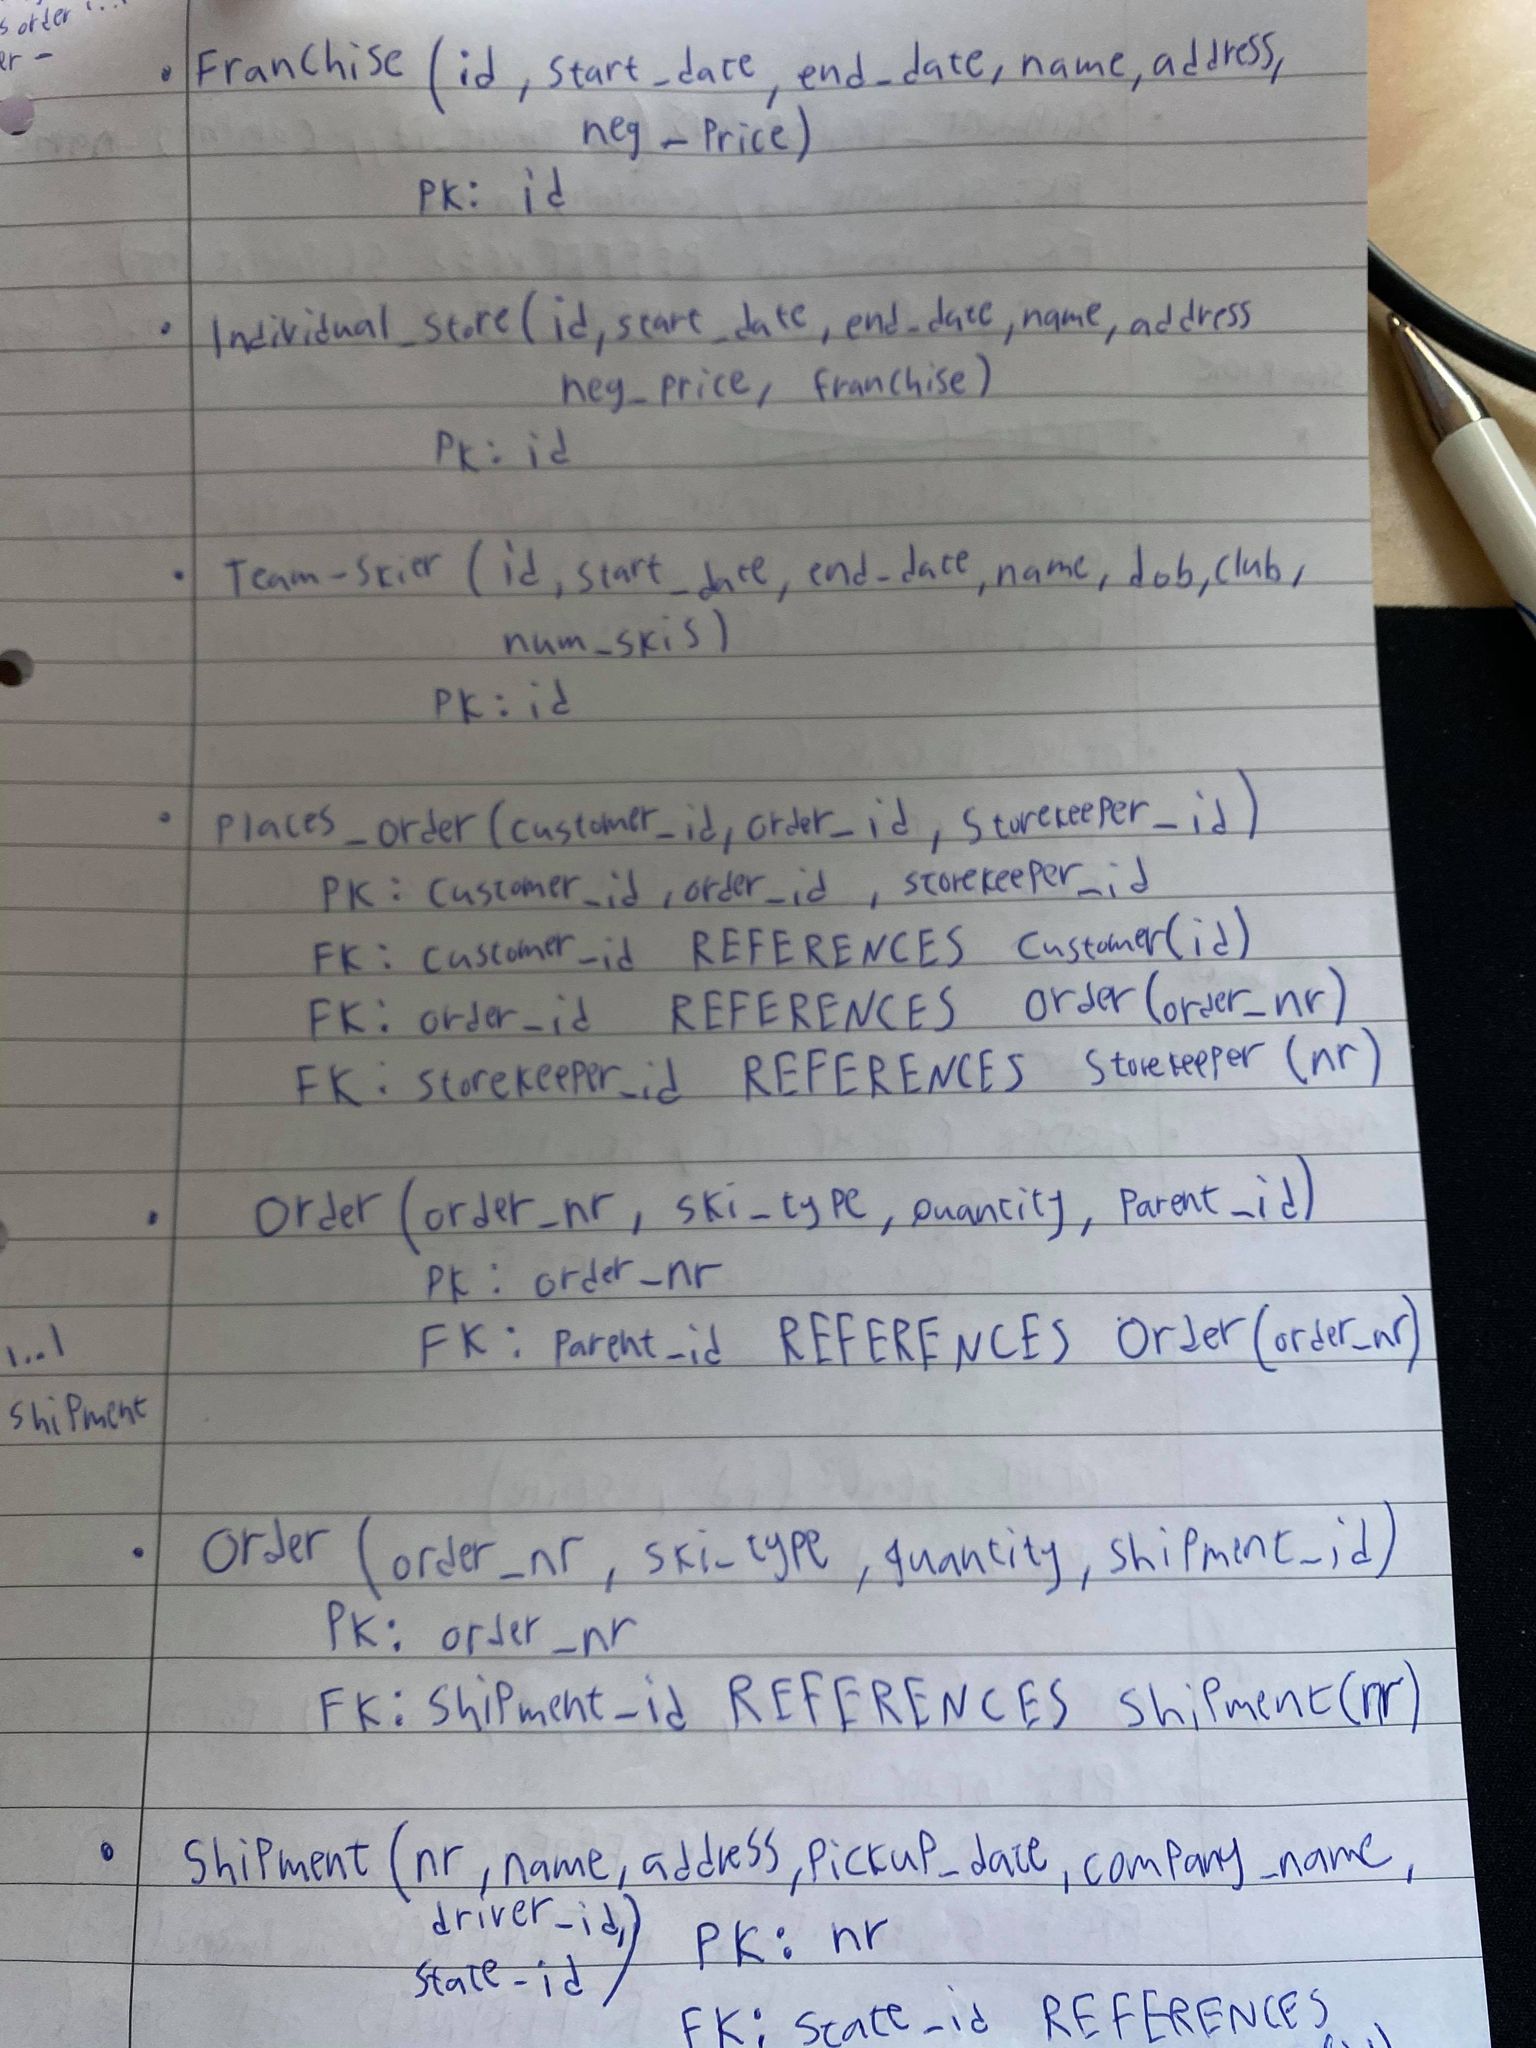 s order 1...
er -
• Franchise (id, start_date, end_date, name, address,
neg_price)
PK: id
• Individual_store (id, start_date, end_date, name, address
neg_price, franchise)
PK: id
• Team-skier (id, start_date, end_date, name, dob, club,
num_skis)
PK: id
• Places_order (customer_id, order_id, storekeeper_id)
PK: customer_id, order_id, storekeeper_id
FK: customer_id REFERENCES customer(id)
FK: order_id REFERENCES order(order_nr)
FK: storekeeper_id REFERENCES storekeeper (nr)
• Order (order_nr, ski_type, quantity, parent_id)
PK: order_nr
FK: parent_id REFERENCES Order(order_nr)
1..1
shipment
• Order (order_nr, ski_type, quantity, shipment_id)
PK: order_nr
FK: shipment_id REFERENCES shipment(nr)
• Shipment (nr, name, address, pickup_date, company_name,
driver_id,
state_id) PK: nr
FK: state_id REFERENCES